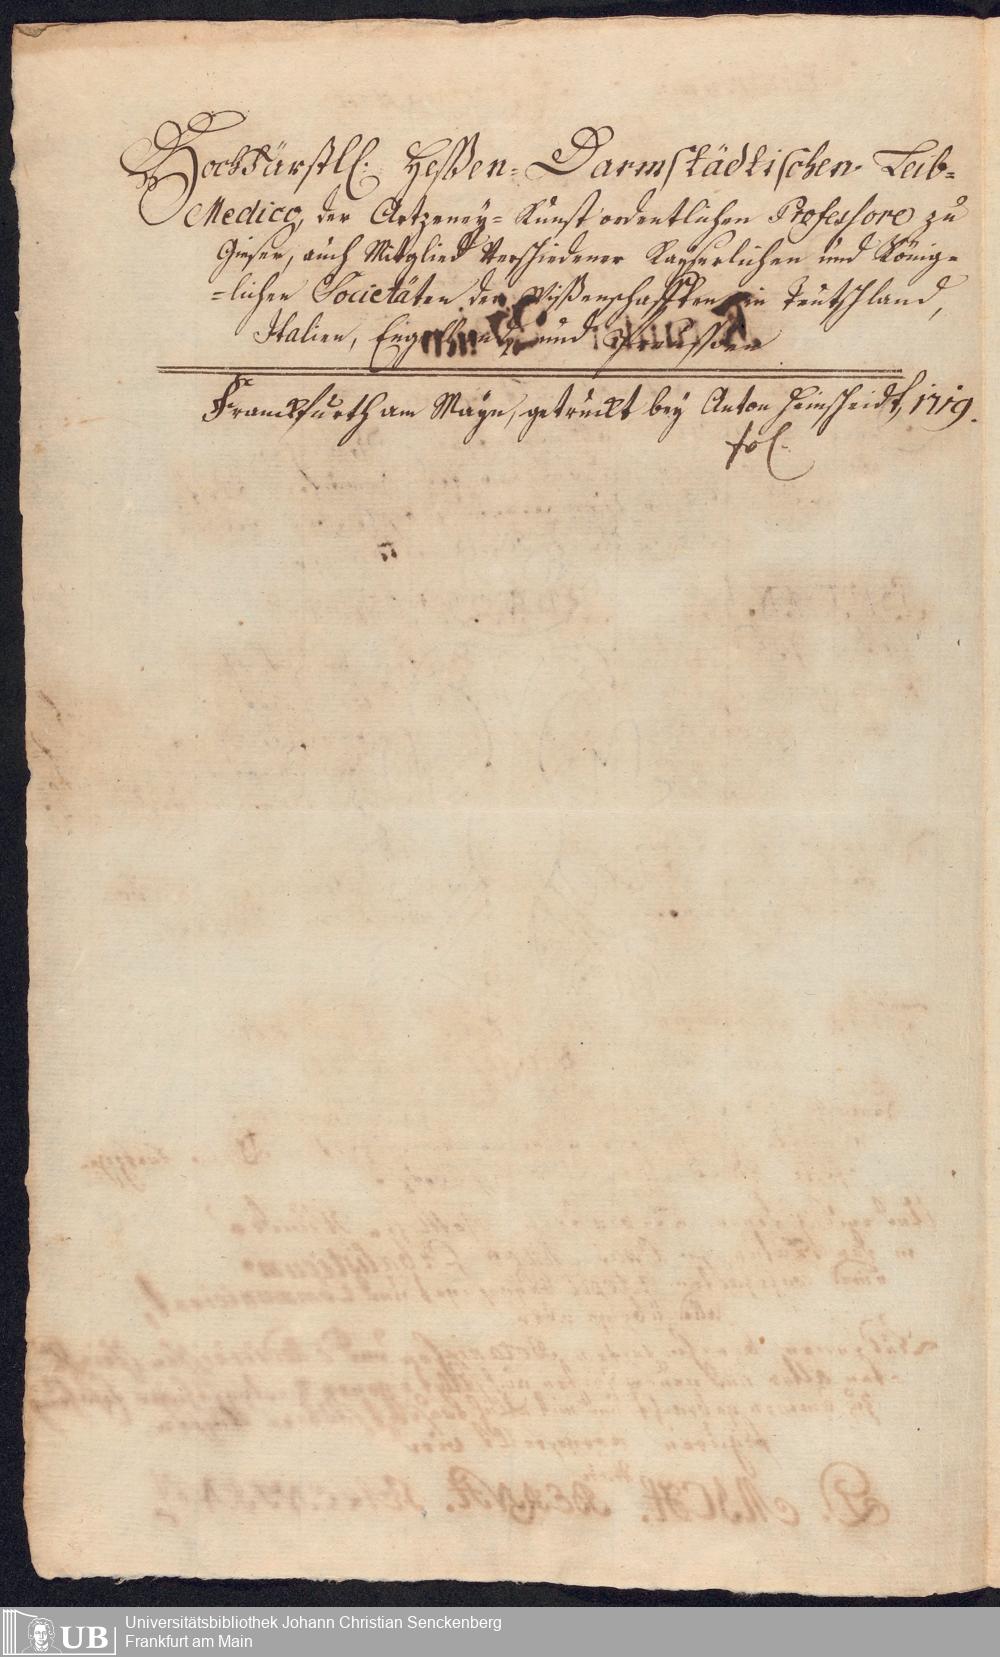 HochFürstl. Heßen-Darmstädtischen Leib-
Medico, der Artzeney-Kunst ordentlichen Professore zu
Giesen, auch Mitglied Verschiedener Kayserlichen und König-
-lichen Societäten der Wißenschafften in Teutschland,
Italien, Engelland und Preussen
Franckfurth am Mayn, getruckt bey Anton Heinscheidt, 1719.
fol.
Universitätsbibliothek Johann Christian Senckenberg
Frankfurt am Main
UB